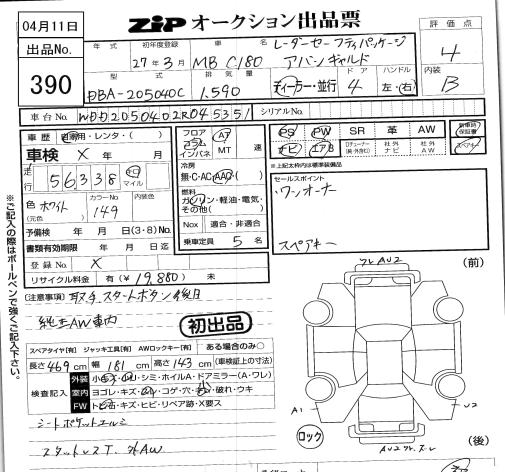 04月11日
ZiP オークション出品票
評価点
出品No.
390
年式
初年度登録
27年3月
車名
MB C180
レーダーセーフティパッケージ
アバンギャルド
4
内装
B
型式
DBA-205040C
排気量
1,590
ディーラー・並行
ドア
4
ハンドル
左・右
車台No.
WDD2050402R045351
シリアルNo.
車歴
自家用・レンタ・( )
車検 X 年 月
走行
56338
キロ
マイル
色
(元色)
ホワイト
カラーNo
149
内装色
予備検 年 月 日(3・8)Mo
書類有効期限 年 月 日迄
登録No.
X
リサイクル料金 有(¥19,880) 未
フロア
コラム
インパネ
AT
MT
速
冷房
無・C・AC・AAC・( )
燃料
ガソリン・軽油・電気・
その他( )
Nox
適合・非適合
乗車定員 5 名
PS
PW
SR
革
AW
新車時
保証書
ナビ
エアB
Dチューナー
(純・外含む)
社外
ナビ
社外
AW
スペアキー
※上記太枠内は標準装備品
セールスポイント
・ワンオーナー
スペアキー
(注意事項) 取、スタートボタン後日
純正AW車内
初出品
スペアタイヤ[有] ジャッキ工具[有] AWロックキー[有] ある場合のみ○
長さ469cm 幅181cm 高さ143cm (車検証上の寸法)
検査記入
外装
小キズ・凹・シミ・ホイルA・ドアミラー(A・ワレ)
室内
ヨゴレ・キズ・スレ・コゲ・穴・破れ・ウキ
FW
トビ石・キズ・ヒビ・リペア跡・X要ス
シートポケットユルミ
スタッドレスT、外AW
フレAU2
(前)
A1
U2
ロック
(後)
※ご記入の際はボールペンで強くご記入下さい。